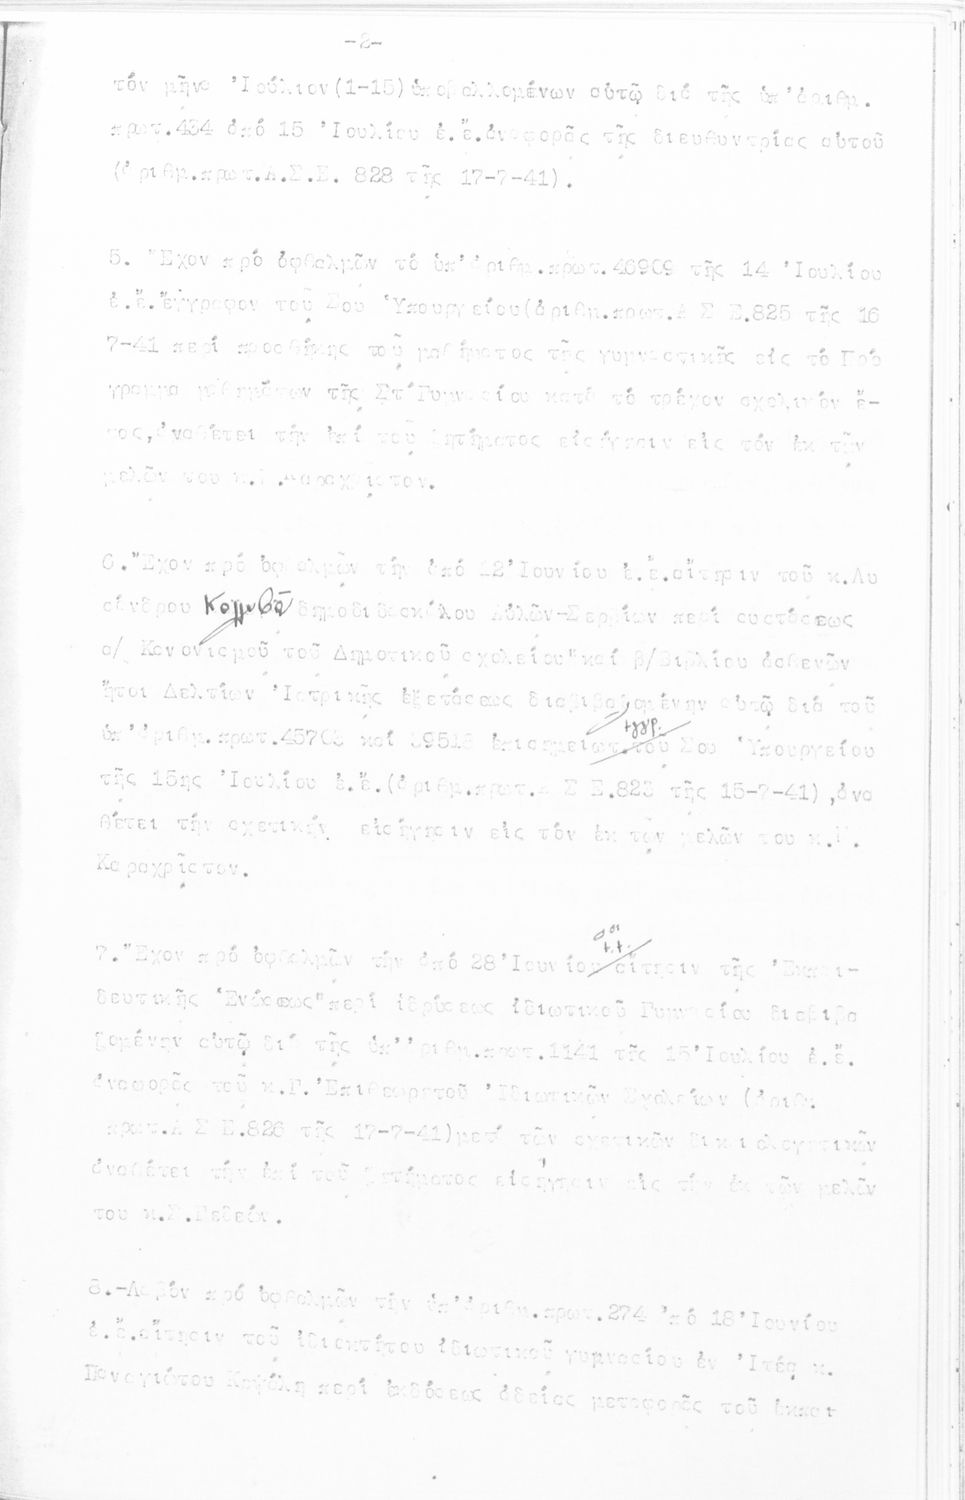 -2-
τόν μῆνα Ἰούλιον(1-15)ὑποβαλλομένων αὐτῷ διά τῆς ὑπ'ἀριθμ.
πρωτ.434 ἀπό 15 Ἰουλίου ἐ.ἔ.ἀναφορᾶς τῆς διευθυντρίας αὐτοῦ
(ἀριθμ.πρωτ.Α.Σ.Ε. 828 τῆς 17-7-41).
5. Ἔχον πρό ὀφθαλμῶν τό ὑπ'ἀριθμ.πρωτ.46909 τῆς 14 Ἰουλίου
ἐ.ἔ.ἔγγραφον τοῦ Σου Ὑπουργείου(ἀριθμ.πρωτ.Α Σ Ε.825 τῆς 16
7-41 περί προσθήκης τοῦ μαθήματος τῆς γυμναστικῆς εἰς τό Πρό
γραμμα μαθημάτων τῆς Στ'Γυμνασίου κατά τό τρέχον σχολικόν ἔ-
τος,ἀναθέτει τήν ἐπί τοῦ ζητήματος εἰσήγησιν εἰς τόν ἐκ τῶν
μελῶν του κ. Καραχρῖστον.
6."Ἔχον πρό ὀφθαλμῶν τήν ἀπό 12'Ιουνίου ἐ.ἔ.αἴτησιν τοῦ κ.Λυ
σάνδρου δημοδιδασκάλου Αὐλῶν-Σερβίων περί συστάσεως
α/ Κανονισμοῦ τοῦ Δημοτικοῦ σχολείου"καί β/Βιβλίου ἀσθενῶν
ἤτοι Δελτίων Ἰατρικῆς ἐξετάσεως διαβιβαζομένην αὐτῷ διά τοῦ
ὑπ'ἀριθμ.πρωτ.45703 καί 39516 ἐπισημειωτ.του Σου Ὑπουργείου
τῆς 15ης Ἰουλίου ἐ.ἔ.(ἀριθμ.πρωτ.Α Σ Ε.823 τῆς 15-7-41),ἀνα
θέτει τήν σχετικήν εἰσήγησιν εἰς τόν ἐκ τῶν μελῶν του κ.
Καραχρῖστον.
7."Ἔχον πρό ὀφθαλμῶν τήν ἀπό 28'Ιουνίου αἴτησιν τῆς Ἐκπαι-
δευτικῆς Ἑνώσεως"περί ἱδρύσεως ἰδιωτικοῦ Γυμνασίου διαβιβα
ζομένην αὐτῷ διά τῆς ὑπ'ἀριθμ.πρωτ.1141 τῆς 15'Ιουλίου ἐ.ἔ.
ἀναφορᾶς τοῦ κ.Γ.'Επιθεωρητοῦ Ἰδιωτικῶν Σχολείων (ἀριθμ.
πρωτ.Α Σ Ε.826 τῆς 17-7-41)μετά τῶν σχετικῶν δικαιολογητικῶν
ἀναθέτει τήν ἐπί τοῦ ζητήματος εἰσήγησιν εἰς τήν ἐκ τῶν μελῶν
του κ.Σ.Γεδεών.
8.-Λαβόν πρό ὀφθαλμῶν τήν ὑπ'ἀριθμ.πρωτ.274 ἀπό 18'Ιουνίου
ἐ.ἔ.αἴτησιν τοῦ ἰδιοκτήτου ἰδιωτικοῦ γυμνασίου ἐν Ἰτέᾳ κ.
Παναγιώτου Κεφάλη περί ἐκδόσεως ἀδείας μεταφορᾶς τοῦ ἐκπαι